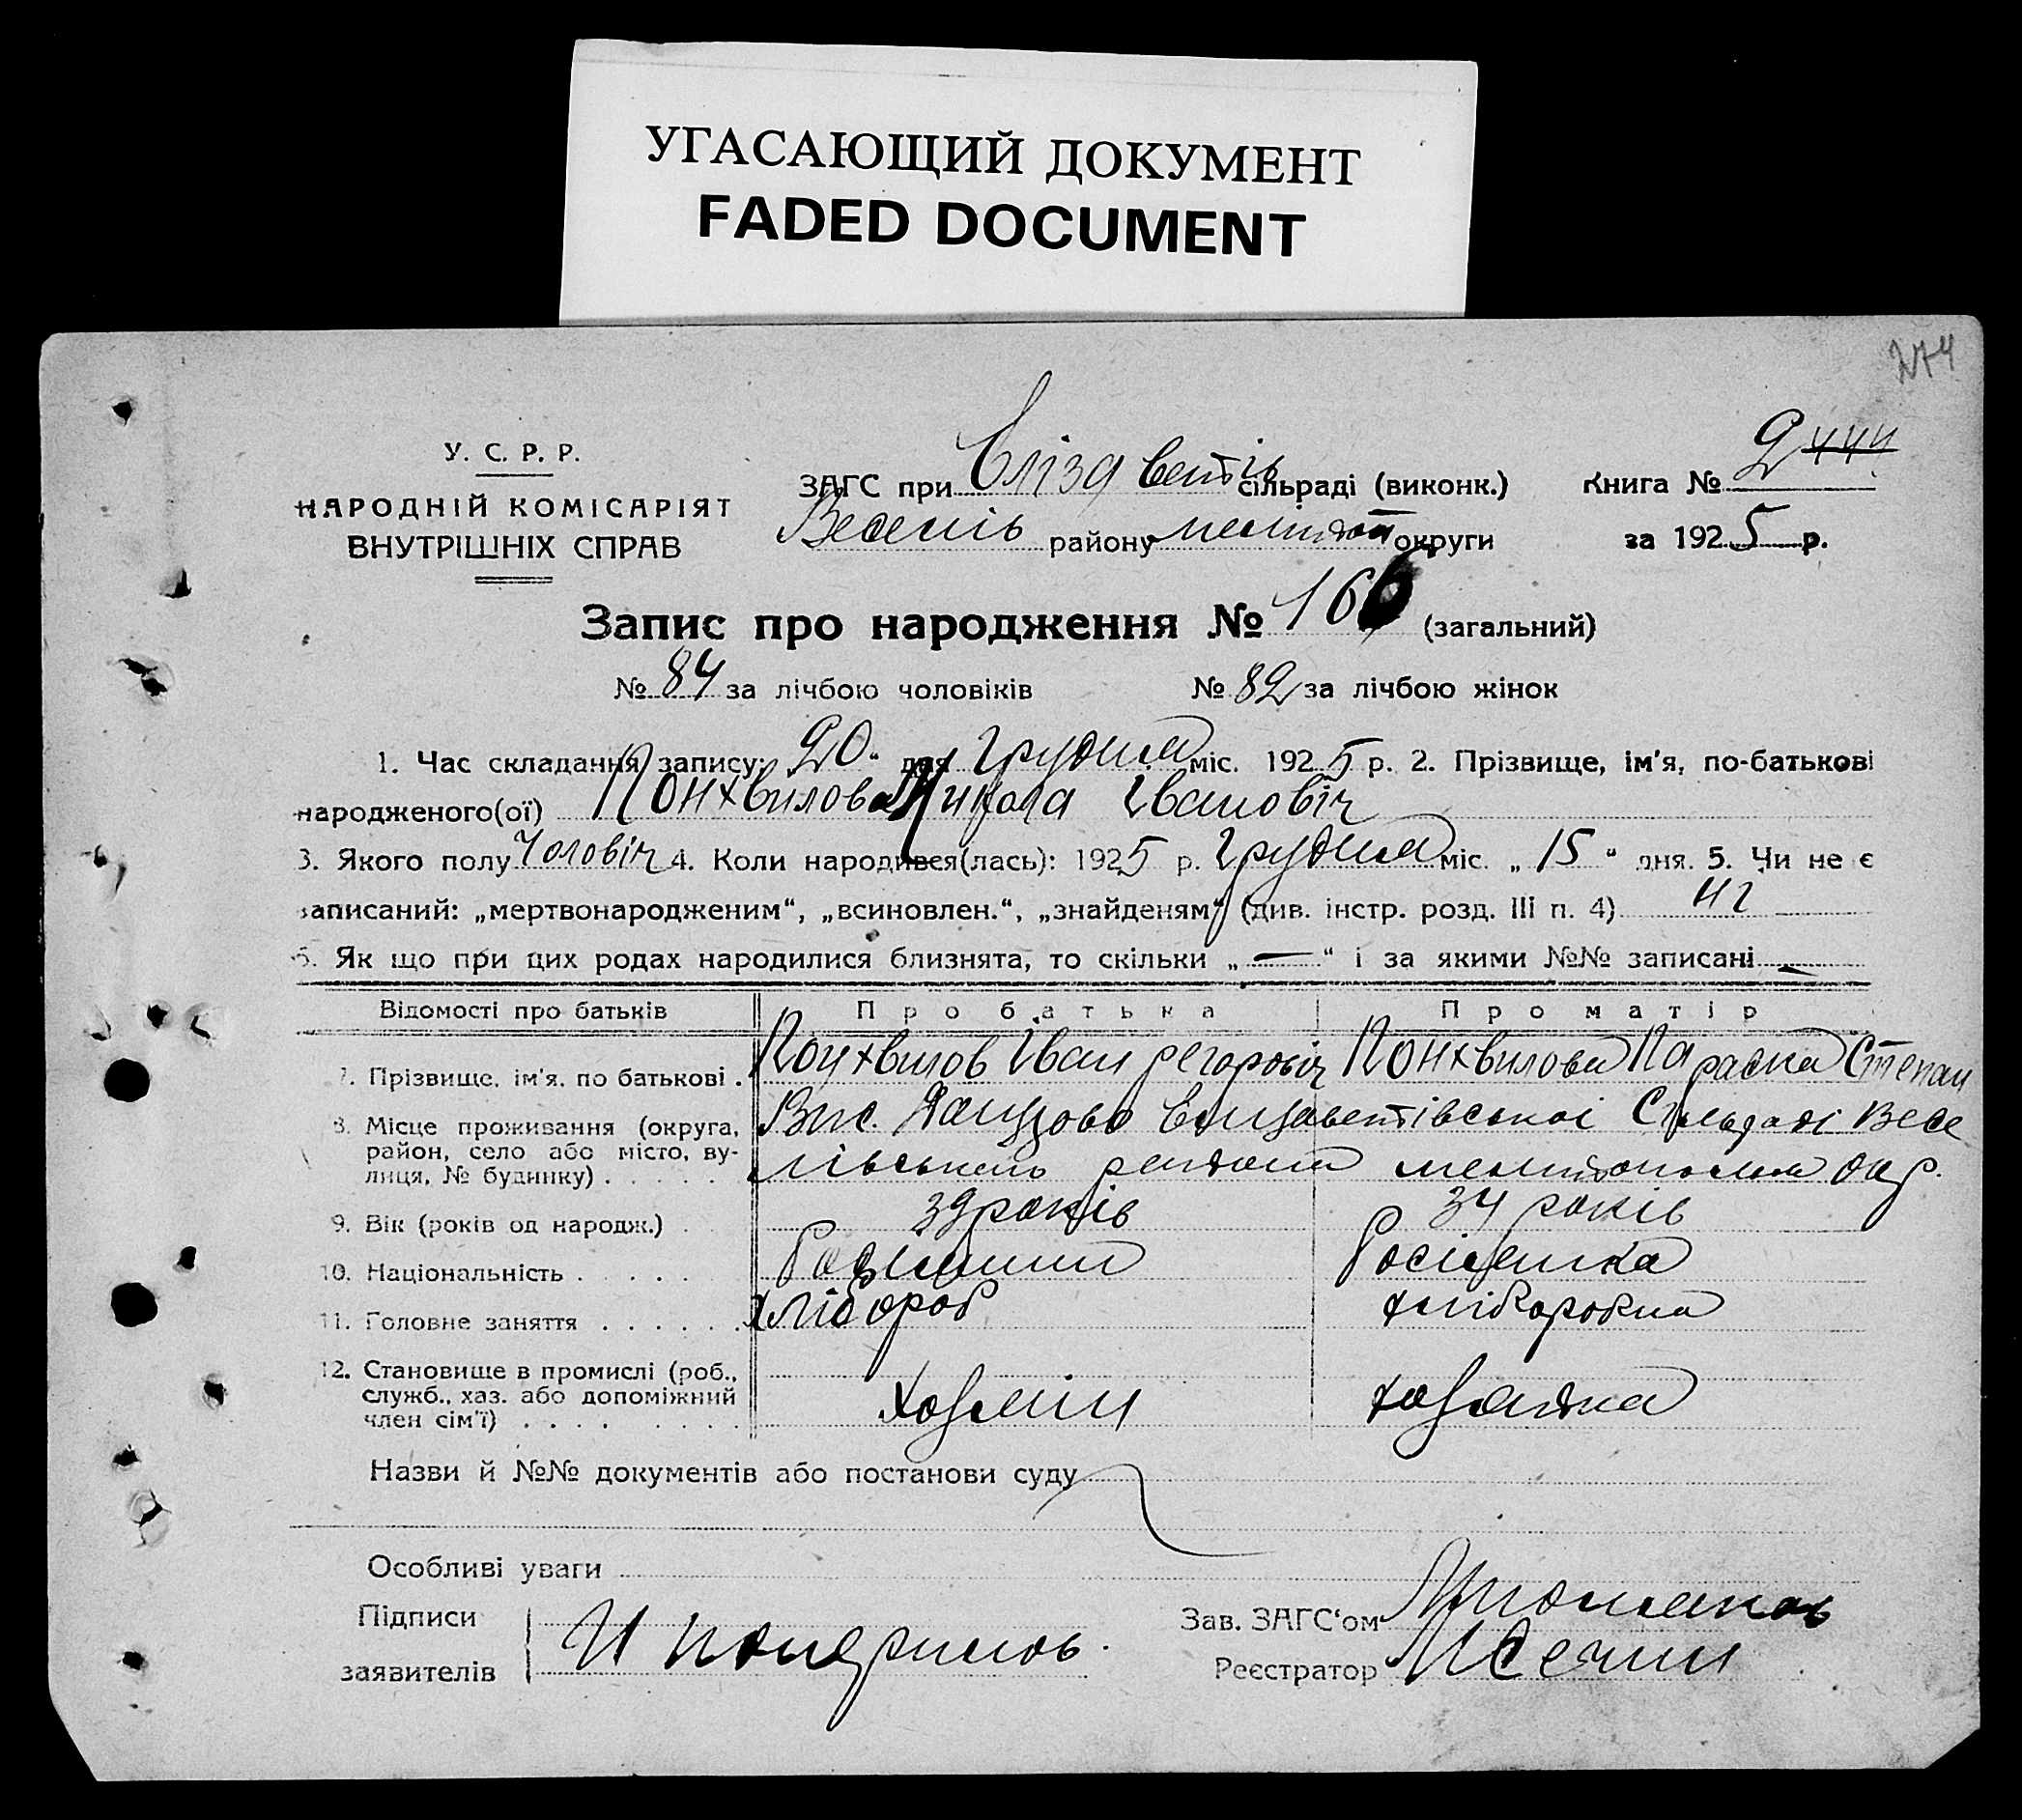 УГАСАЮЩИЙ ДОКУМЕНТ
FADED DOCUMENT
274
У. С. Р. Р.
НАРОДНІЙ КОМІСАРІЯТ
ВНУТРІШНІХ СПРАВ
ЗАГС при Єлізаветів сільраді (виконк.)
Веселів району мелітоп округи
Книга № 2
за 1925 р.
Запис про народження № 166 (загальний)
№ 84 за лічбою чоловіків № 82 за лічбою жінок
1. Час складання запису: 20 " дня Грудня міс. 1925 р. 2. Прізвище, ім'я, по-батькові
народженого(ої) Понхвилов Микола Іванович
3. Якого полу Чоловіч 4. Коли народився(лась): 1925 р. Грудня міс. „ 15 " дня. 5. Чи не є
записаний: „мертвонародженим“, „всиновлен.“, „знайденям“ (див. інстр. розд. III п. 4) ні
6. Як що при цих родах народилися близнята, то скільки „ — “ і за якими №№ записані —
Відомості про батьків Про батька Про матір
7. Прізвище, ім'я, по батькові . Понхвилов Іван Понхвилова Параска Степан
8. Місце проживання (округа, район, село або місто, вулиця, № будинку) . . . . . Вис. Єлизаветівської Сільради Веселівського району мелітопольск окр.
9. Вік (років од народж.) . . 39 років 34 років
10. Національність . . . . . Росіянин Росіянка
11. Головне заняття . . . . . . хлібороб хліборобка
12. Становище в промислі (роб., служб., хаз. або допоміжний член сім'ї) . . . . . . . . хозяїн хозяйка
Назви й №№ документів або постанови суду
Особливі уваги
Підписи
заявителів И
Зав. ЗАГС‘ом
Реєстратор